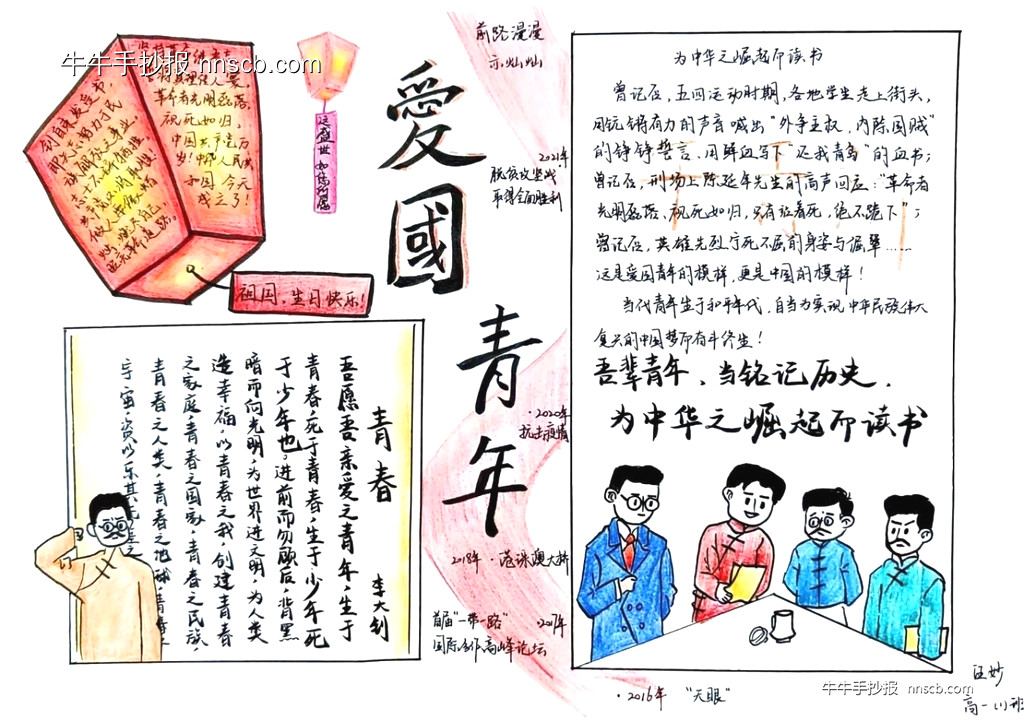 牛牛手抄报 nnscb.com
革命者光明磊落，
视死如归。
中国共产党万
岁！中华人民共
和国 今天
成立了！
祖国，生日快乐！
这盛世如你所愿
愛國
青年
前路漫漫
亦灿灿
2021年
脱贫攻坚战
取得全面胜利
·2020年
抗击疫情
2018年·港珠澳大桥
首届“一带一路” 2017年
国际合作高峰论坛
·2016年 “天眼”
青春 李大钊
吾愿吾亲爱之青年，生于
青春死于青春，生于少年死
于少年也。进前而勿顾后，背黑
暗而向光明，为世界进文明，为人类
造幸福，以青春之我，创建青春
之家庭，青春之国家，青春之民族，
青春之人类，青春之地球，青春之
宇宙，资以乐其无涯之
为中华之崛起而读书
曾记否，五四运动时期，各地学生走上街头，
用铿锵有力的声音喊出“外争主权，内除国贼”
的铮铮誓言，用鲜血写下“还我青岛”的血书；
曾记否，刑场上陈延年先生的高声回应：“革命者
光明磊落、视死如归，只有站着死，绝不跪下”；
曾记否，英雄先烈宁死不屈的身姿与倔犟……
这是爱国青年的模样，更是中国的模样！
当代青年生于和平年代，自当为实现中华民族伟大
复兴的中国梦而奋斗终生！
吾辈青年、当铭记历史，
为中华之崛起而读书
牛牛手抄报 nnscb.com
高一（1）班